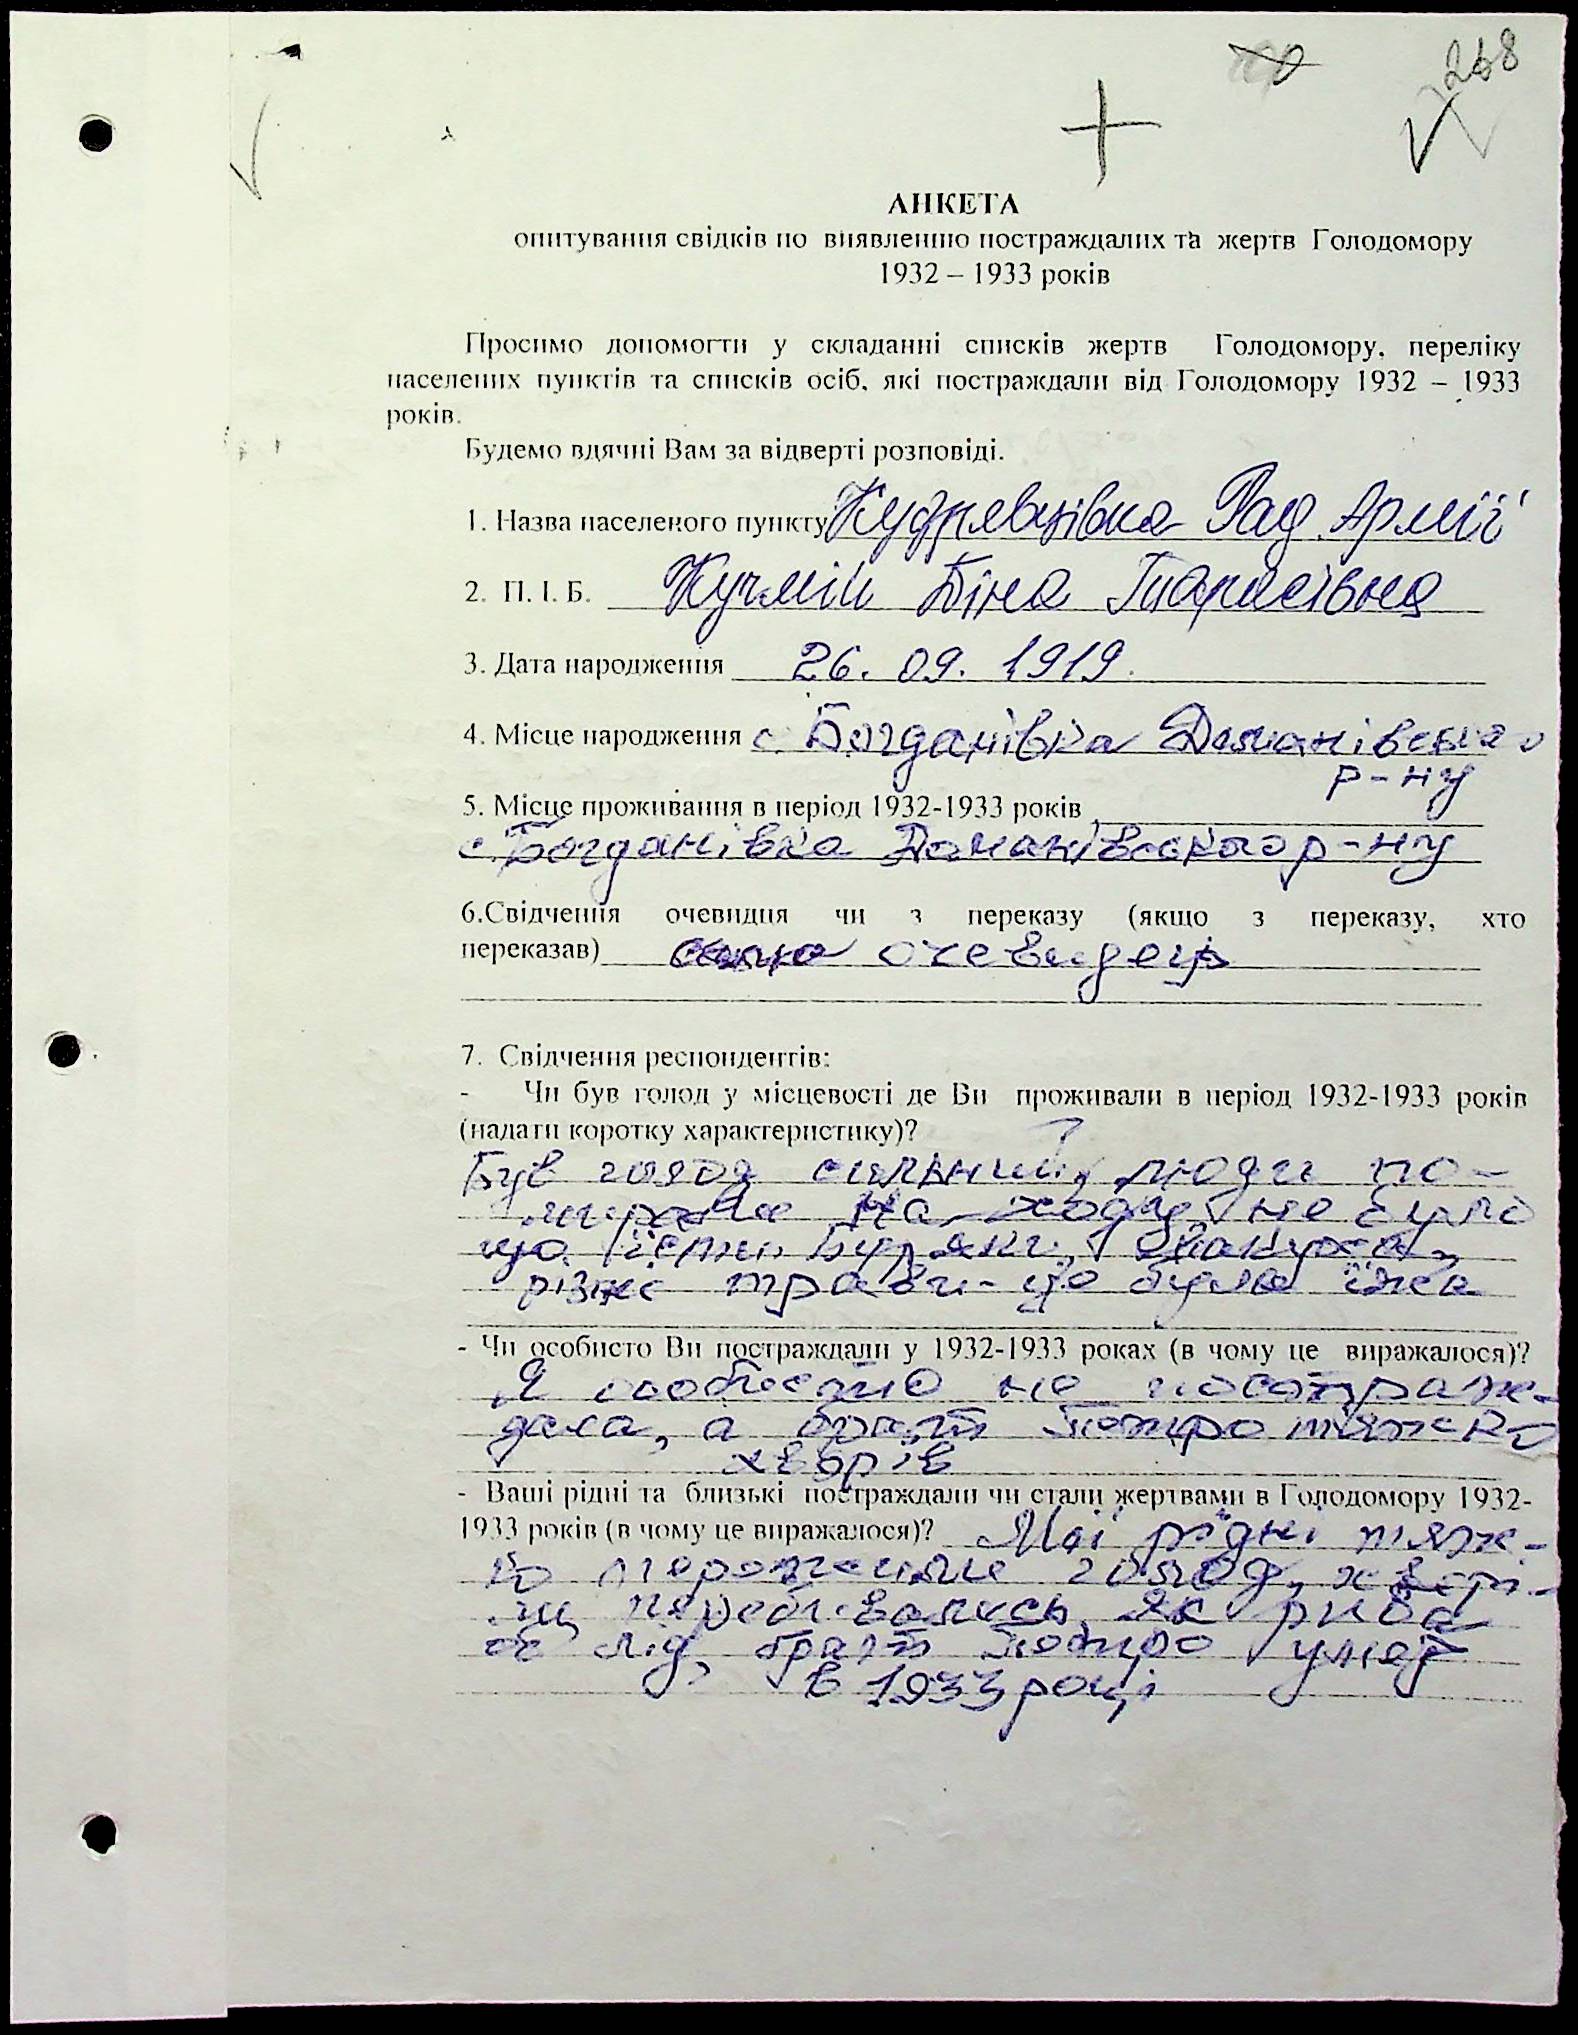 268
АНКЕТА
опитування свідків по виявленню постраждалих та жертв Голодомору
1932 – 1933 років
Просимо допомогти у складанні списків жертв Голодомору, переліку
населених пунктів та списків осіб, які постраждали від Голодомору 1932 – 1933
років.
Будемо вдячні Вам за відверті розповіді.
1. Назва населеного пункту Кудрявцівка Рад. Армії
2. П. І. Б. Кучмій Тарасівна
3. Дата народження 26. 09. 1919.
4. Місце народження с. Богданівка Доманівського
р-ну
5. Місце проживання в період 1932-1933 років
с. Богданівка Доманівського р-ну
6.Свідчення очевидця чи з переказу (якщо з переказу, хто
переказав) очевидець
7. Свідчення респондентів:
- Чи був голод у місцевості де Ви проживали в період 1932-1933 років
(надати коротку характеристику)?
Був голод сильний, люди по-
мирали на ходу, не було
що їсти. Буряки, макуха,
різні трави - це була їжа
- Чи особисто Ви постраждали у 1932-1933 роках (в чому це виражалося)?
Я особисто не постраж-
дала, а брат Петро тяжко
хворів
- Ваші рідні та близькі постраждали чи стали жертвами в Голодомору 1932-
1933 років (в чому це виражалося)? Мої рідні тяж-
ко пережили голод,
як риба
об лід, брат Петро умер
в 1933 році